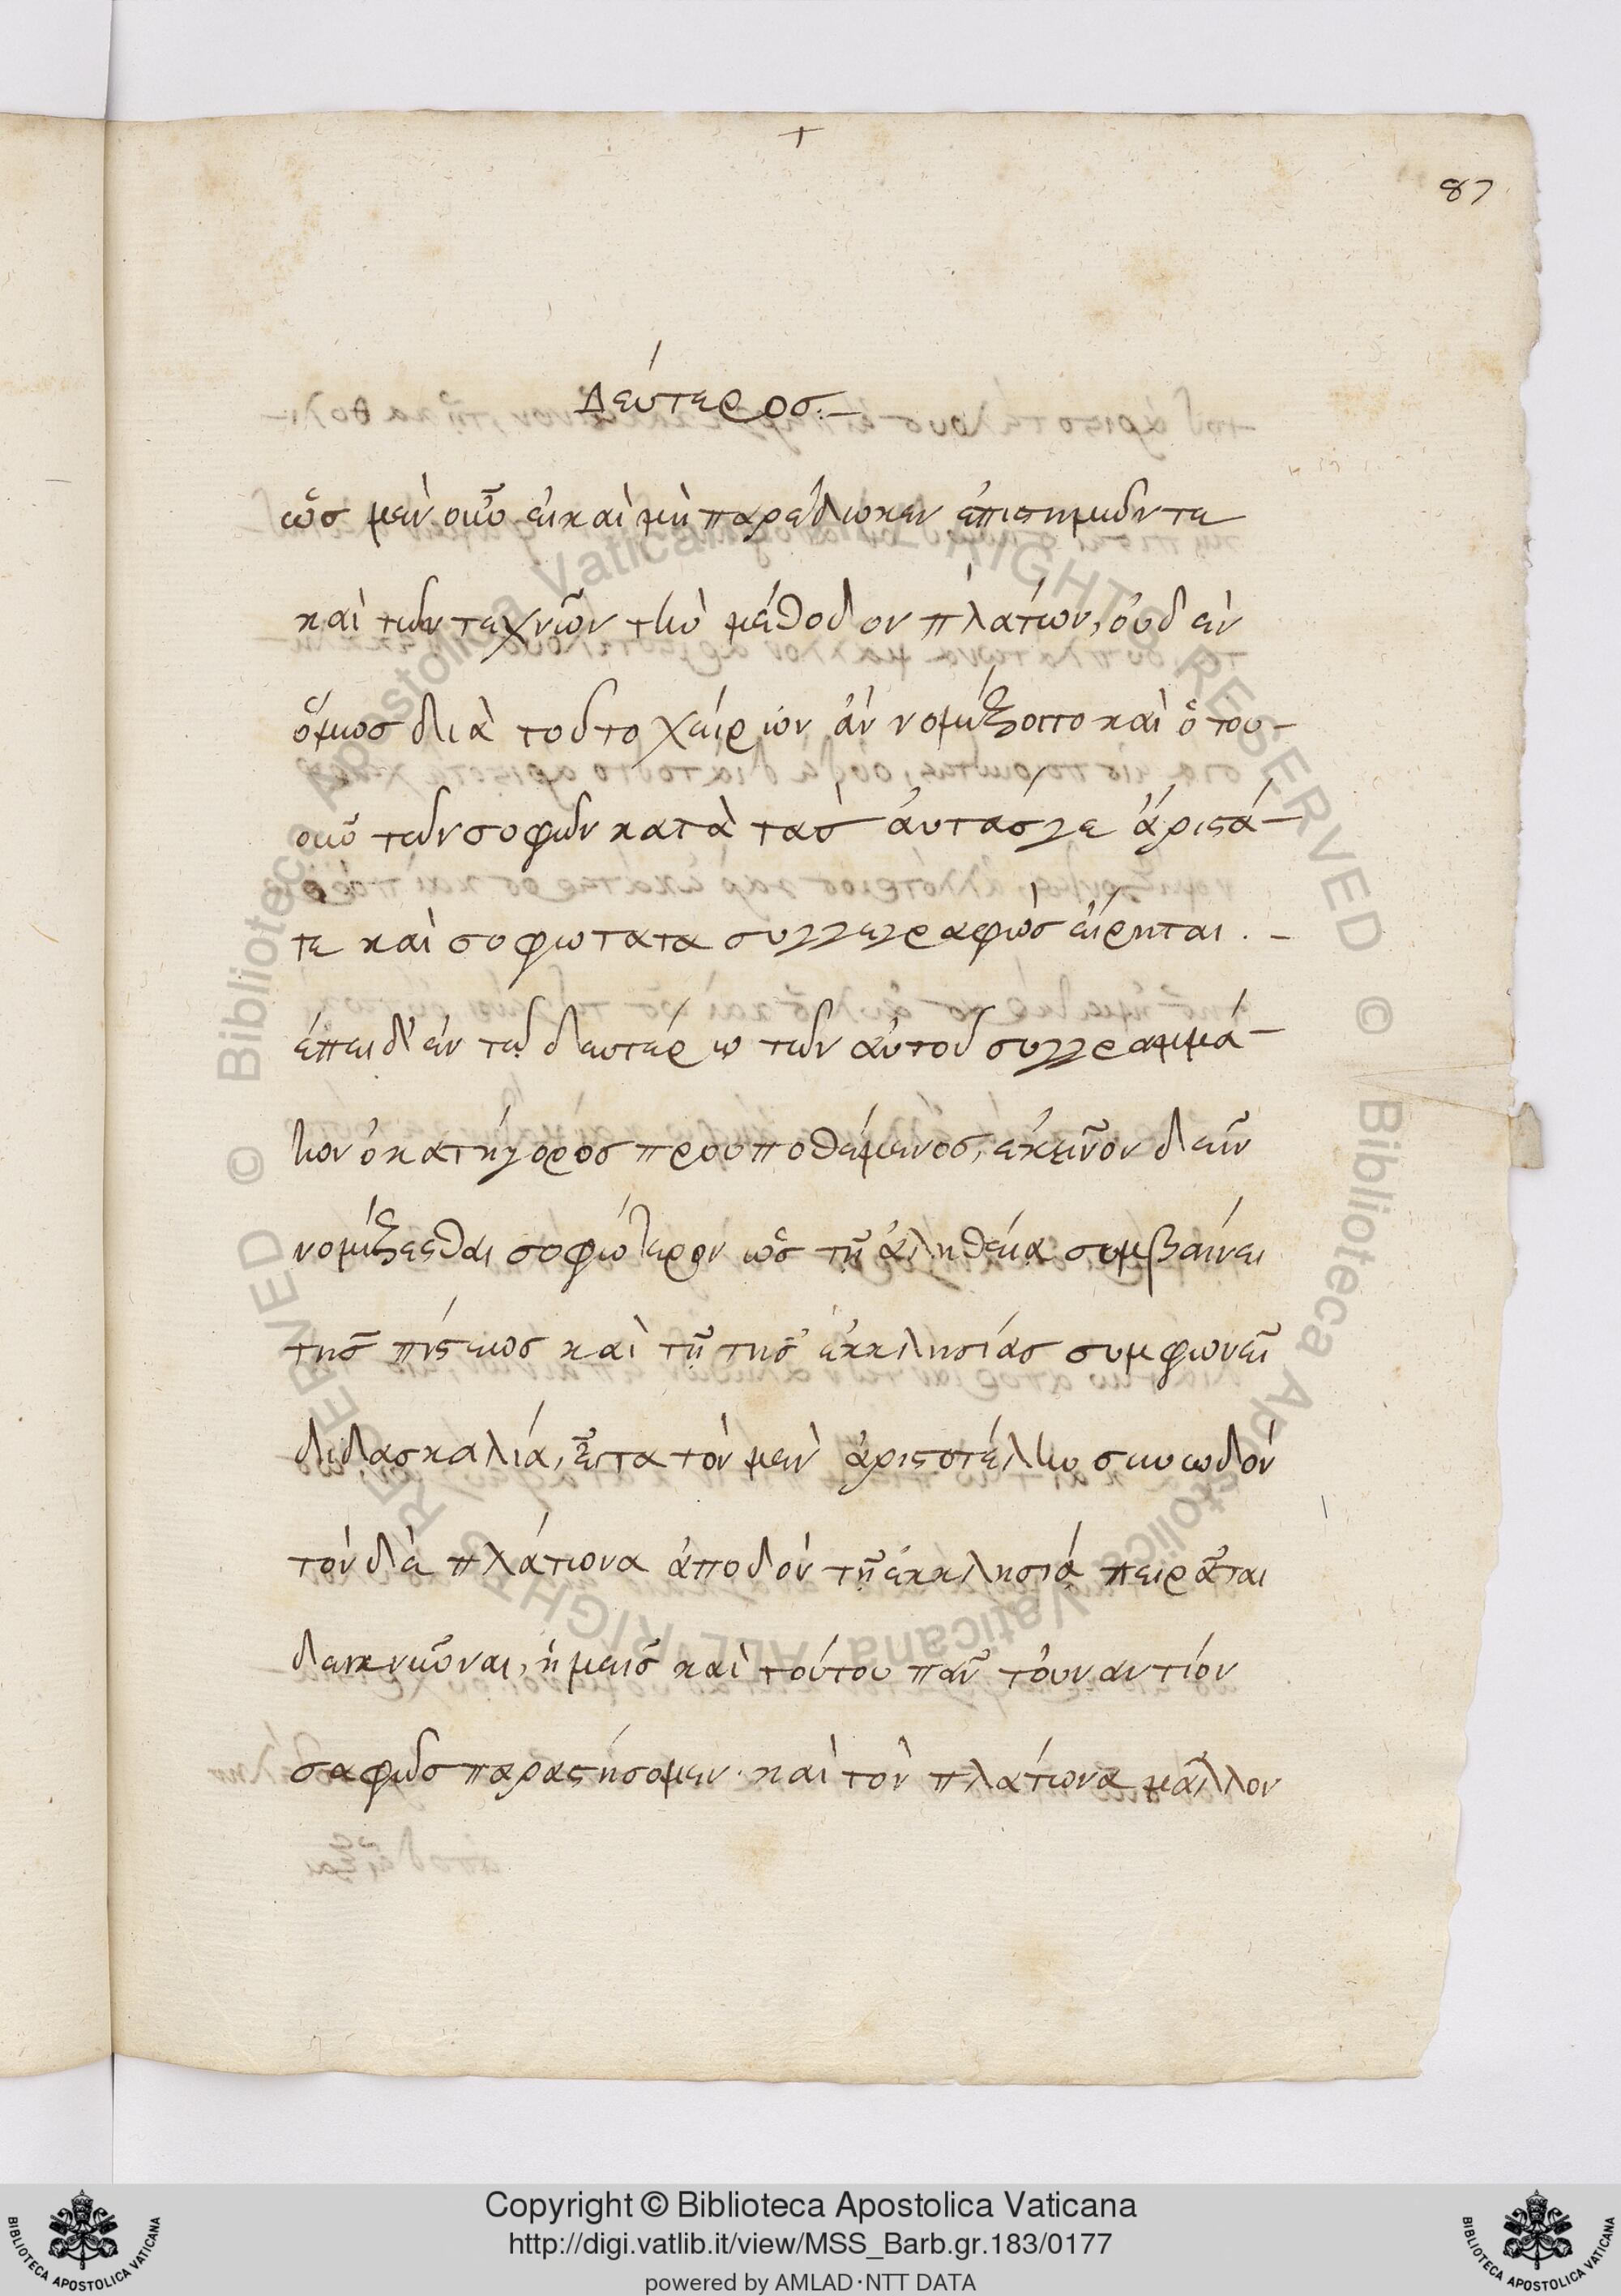 87
Δεύτεροσ.–
ὡσ μὲν οὖν εἰ καὶ μὴ παρέδωκεν ἐπιστημῶν τε
καὶ τῶν τεχνῶν τὴν μέθοδον πλάτων, οὐδὲν
ὅμωσ διὰ τοῦτο χείρων ἂν νομίζοιτο καὶ ὅτου–
οὖν τῶν σοφῶν κατὰ τὰσ αὐτάσ γε ἄριστά–
τε καὶ σοφώτατα συγγεγραφὼσ εἴρηται . –
ἐπεὶ δ' ἐν τῷ δευτέρῳ τῶν αὐτοῦ συγγραμμά–
των ὁ κατήγοροσ προυποθέμενοσ, ἐκεῖνον δεῖν
νομίζεσθαι σοφώτερον ὡσ τῇ ἀληθείᾳ συμβαίνει
τῆσ πίστεωσ καὶ τῇ τῆσ ἐκκλησίασ συμφωνεῖ
διδασκαλίᾳ, εἶτα τὸν μὲν ἀριστοτέλην συνωδὸν
τὸν δὲ πλάτωνα ἀποδὸν τῇ ἐκκλησίᾳ πειρᾶται
δεικνῦναι, ἡμεῖσ καὶ τούτου πᾶν τοὐναντίον
σαφῶσ παραστήσομεν· καὶ τὸν πλάτωνα μᾶλλον
© Biblioteca Apostolica Vaticana ALL RIGHTS RESERVED
© Biblioteca Apostolica Vaticana ALL RIGHTS RESERVED
Copyright © Biblioteca Apostolica Vaticana
http://digi.vatlib.it/view/MSS_Barb.gr.183/0177
powered by AMLAD·NTT DATA
BIBLIOTECA APOSTOLICA VATICANA
BIBLIOTECA APOSTOLICA VATICANA